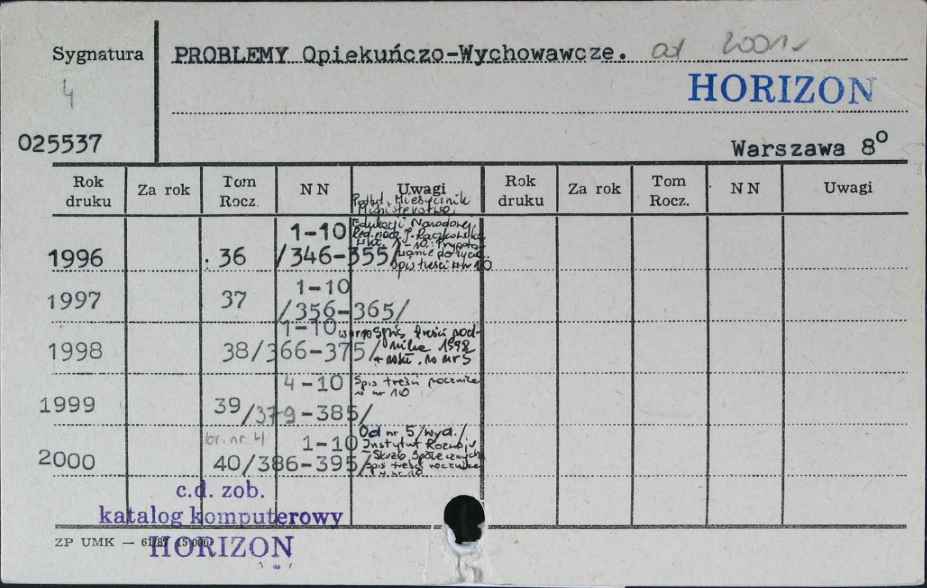 Sygnatura PROBLEMY Opiekuńczo-Wychowawcze. od 2001r
4 HORIZON
025537 Warszawa 8⁰
Rok druku Za rok Tom Rocz. NN Uwagi Rok druku Za rok Tom Rocz. NN Uwagi
Podtyt. Miesięcznik
Ministerstwa
Edukacji Narodowej
1996 36 1-10 /346-355/
Spis treści w nr 10
1997 37 1-10 /356-365/
1998 38 1-10 /366-375/
spis treści
1998
1999 39 4-10 /379-385/
Spis treści rocznika
w nr 10
br. nr 4
2000 40 1-10 /386-395/
Od nr 5/wyd./
Instytut Rozwoju
Służb Społecznych
spis treści rocznika
w nr 10
c.d. zob.
katalog komputerowy
HORIZON
ZP UMK —